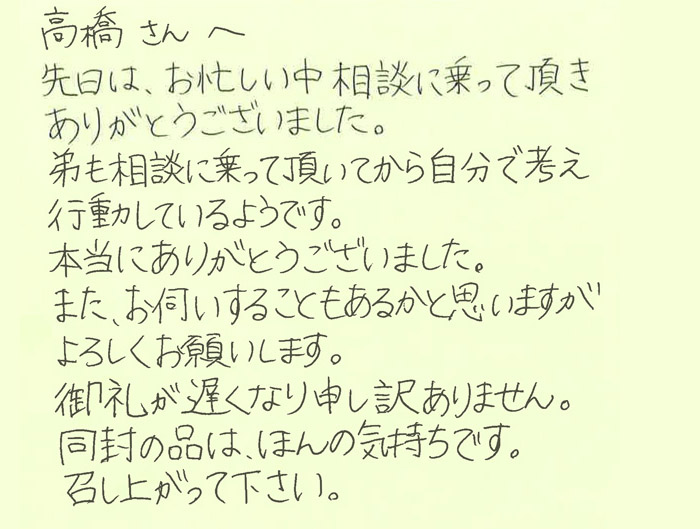 高橋さんへ
先日は、お忙しい中相談に乗って頂き
ありがとうございました。
弟も相談に乗って頂いてから自分で考え
行動しているようです。
本当にありがとうございました。
また、お伺いすることもあるかと思いますが
よろしくお願いします。
御礼が遅くなり申し訳ありません。
同封の品は、ほんの気持ちです。
召し上がって下さい。